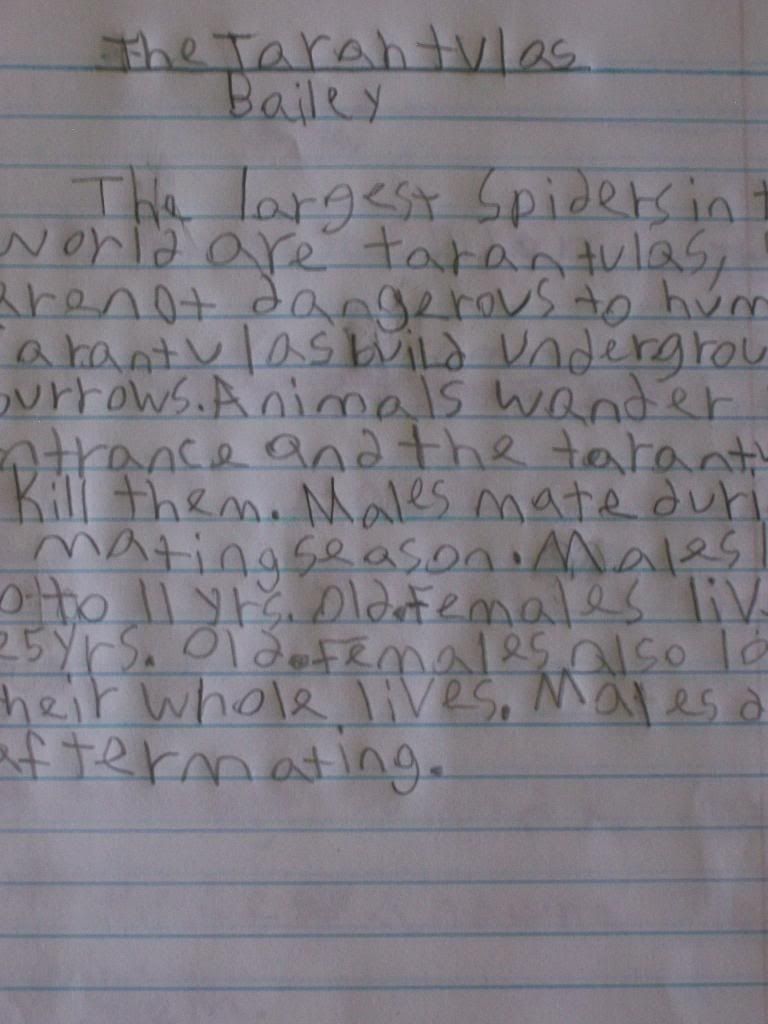 The Tarantulas
Bailey
The largest Spiders in t
world are tarantulas,
are not dangerous to hum
arantulas build undergrou
urrows. Animals wander
ntrance and the tarantu
Kill them. Males mate duri
mating season. Males l
to 11 yrs. Old. Females liv
25 yrs. Old. Females also lo
heir whole lives. Males d
after mating.